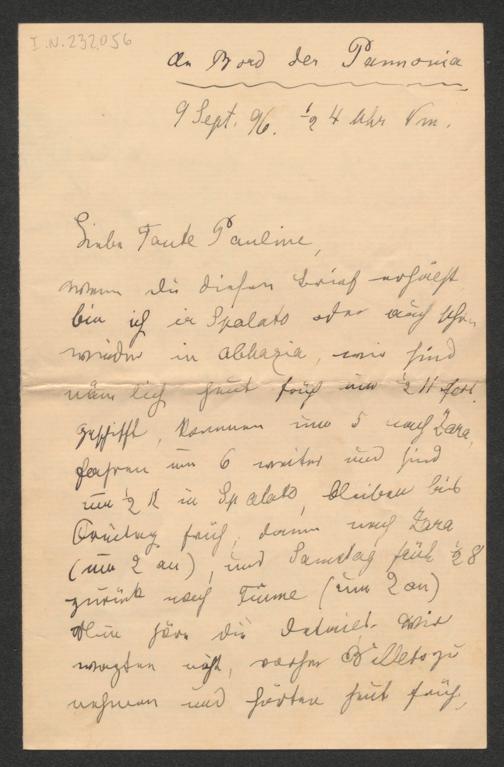 I.N. 232.056
An Bord der Pannonia
9 Sept. 96. ½ 4 Uhr Nm.
Liebe Tante Pauline,
wenn du diesen Brief erhälst
bin ich in Spalato oder auch schon
wieder in Abbazia, wir sind
nämlich heut früh um ½ 11 fort
geschifft, kommen um 5 nach Zara,
fahren um 6 weiter und sind
um ½ 12 in Spalato, bleiben bis
Freitag früh, dann nach Zara
(um 2 an), und Samstag früh ½ 8
zurück nach Fiume (um 2 an)
Nun höre die Details. Wir
wagten nicht, vorher Billets zu
nehmen und hörten heut früh,